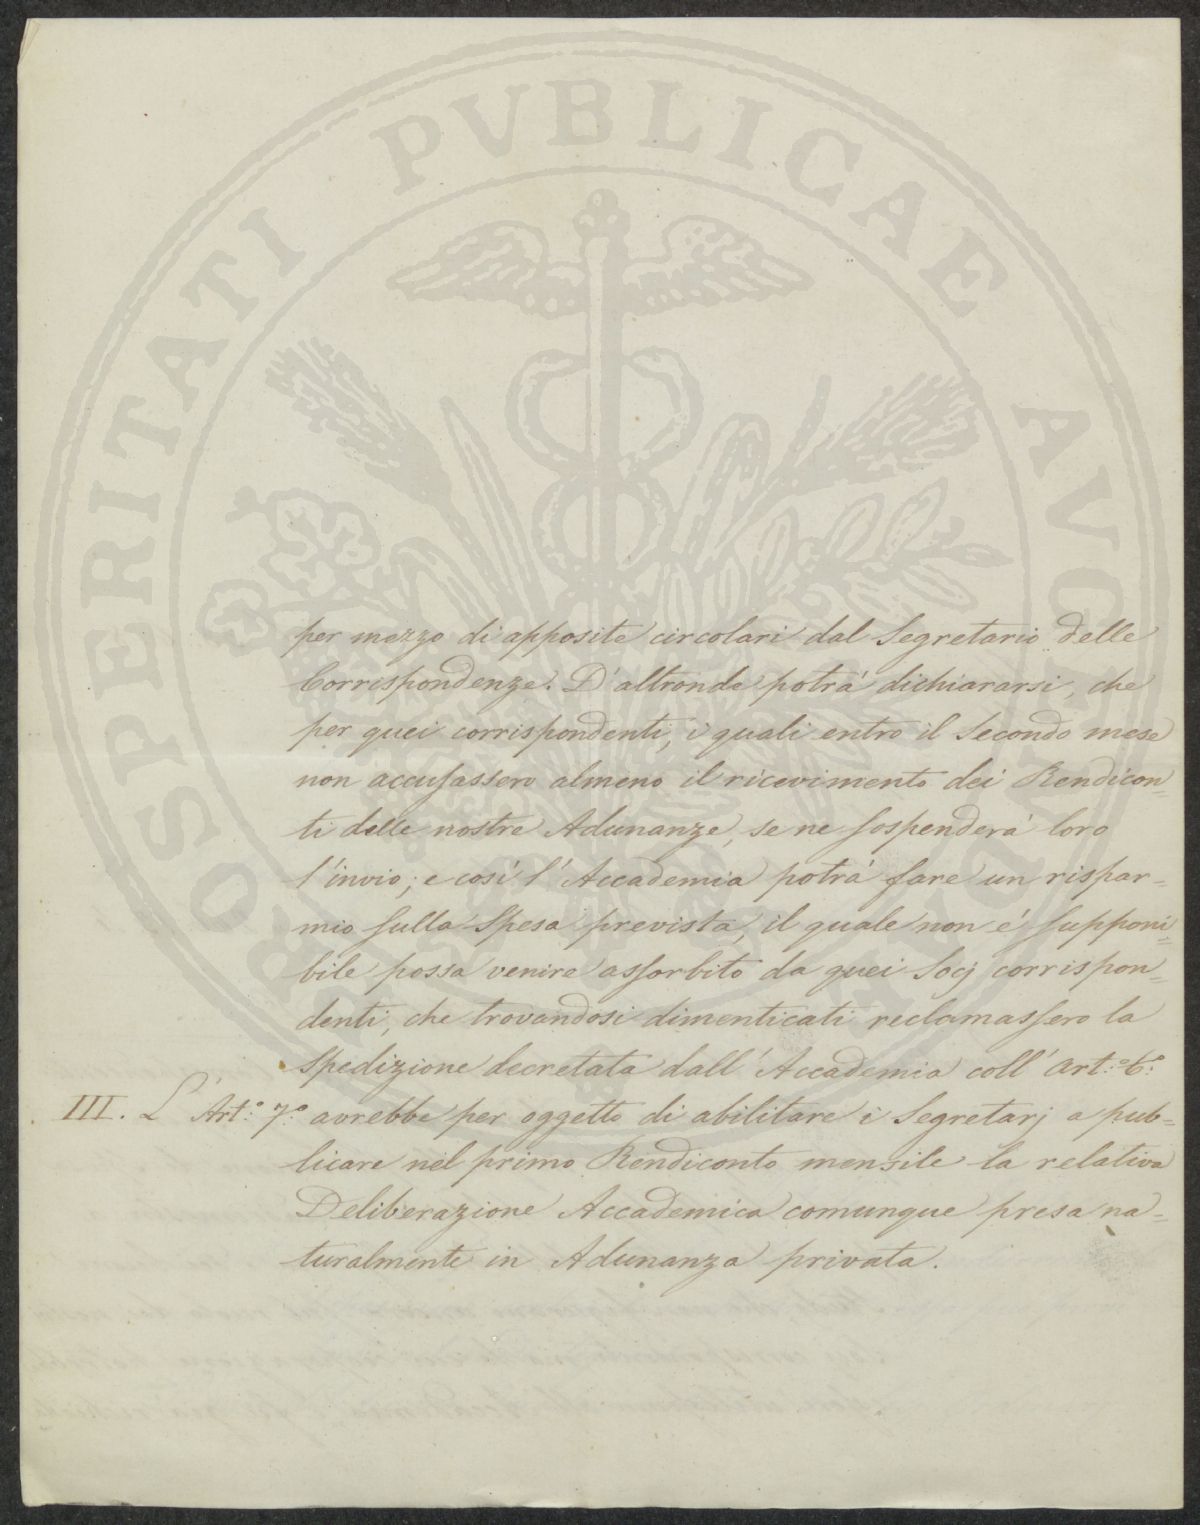 PROSPERITATI PUBLICAE AUGENDAE
per mezzo di apposite circolari dal Segretario delle
Corrispondenze. D'altronde potrà dichiararsi, che
per quei corrispondenti, i quali entro il Secondo mese
non accusassero almeno il ricevimento dei Rendicon=
ti delle nostre Adunanze, se ne sospenderà loro
l'invio; e così l'Accademia potrà fare un rispar=
mio sulla Spesa prevista, il quale non è supponi=
bile possa venire assorbito da quei Socj corrispon=
denti, che trovandosi dimenticati reclamassero la
Spedizione decretata dall'Accademia coll'Art.° 6.°
III. L'Art.° 7.° avrebbe per oggetto di abilitare i Segretarj a pub=
licare nel primo Rendiconto mensile la relativa
Deliberazione Accademica comunque presa na=
turalmente in Adunanza privata.